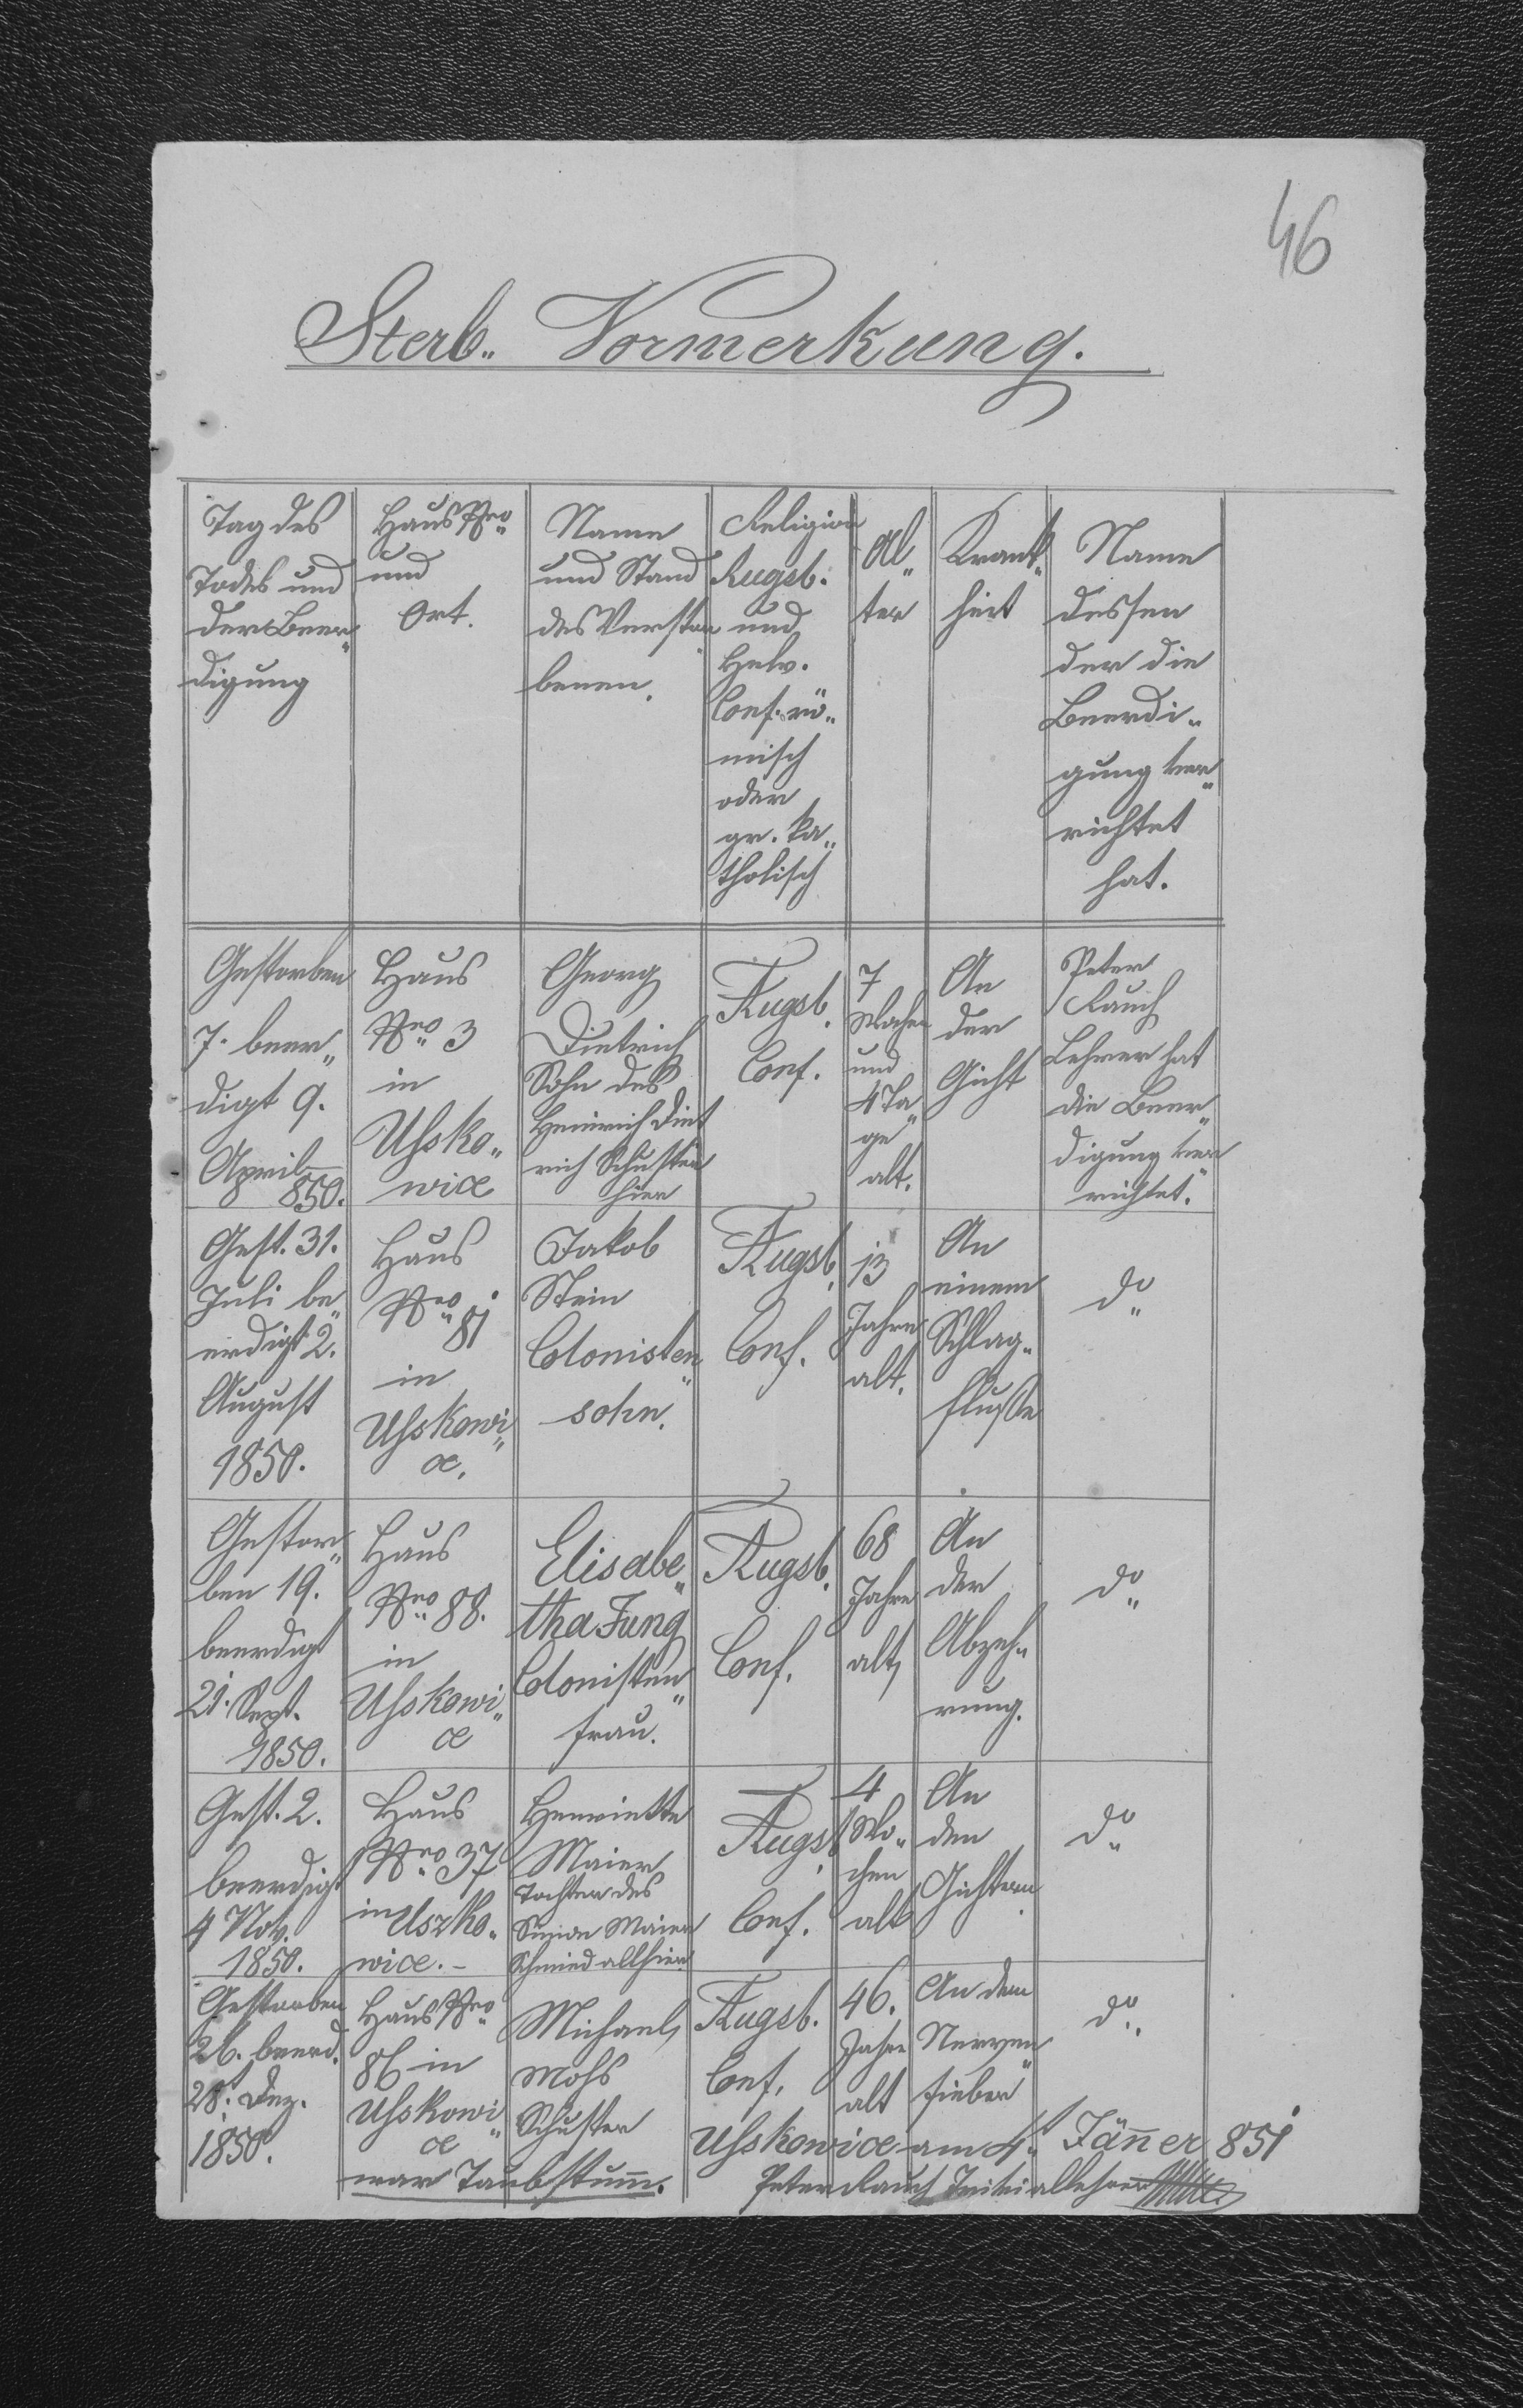 46
Sterb„ Vormerkung.
Tag des
Todes und
der Beer„
digung
Haus Nro
und
Ort.
Name
und Stand
des Verstor„
benen.
Religion
Augsb.
und
Helv.
Conf. rö„
misch
oder
gr. ka„
tholisch
Al„
ter
Krank„
heit
Name
dessen
der die
Beerdi„
gung ver„
richtet
hat.
Gestorben
7. beer„
digt 9.
April
850.
Haus
Nro 3
in
Ußko„
wice
Georg
Dietrich
Sohn des
Heinrich Diet
rich Schuster
hier
Augsb.
Conf.
7
Wochen
und
4 Ta„
ge
alt.
An
der
Gicht
Peter
Rauch
Lehrer hat
die Beer„
digung ver„
richtet.
Gest. 31.
Juli be„
erdigt 2.
August
1850.
Haus
Nro 81
in
Ußkowi„
ce.
Jakob
Stein
Colonisten„
sohn.
Augsb.
Conf.
13
Jahre
alt.
An
einem
Schlag„
flusse
do
Gestor„
ben 19.
beerdigt
21. Sept.
1850.
Haus
Nro 88.
in
Ußkowi„
ce
Elisabe„
tha Jung
Colonisten„
frau.
Augsb.
Conf.
68
Jahre
alt,
An
der
Abzeh„
rung.
do
Gest. 2.
beerdigt
4 Nov.
1850.
Haus
Nro 37
in Uszko„
wice. –
Henriette
Maier
Tochter des
Simon Maier
Schmied allhier
Augsb.
Conf.
4
Wo„
chen
alt
An
den
Gichtern
do
Gestorben
26. beerd.
28t. Dez.
1850.
Haus Nro
86 in
Ußkowi„
ce
Michael
Mohs
Schuster
war Taubstum̅.
Augsb.
Conf.
46.
Jahre
alt
An dem
Nerven„
fieber
do
Ußkowice am 4t. Jän̅er 851
Peter Rauch